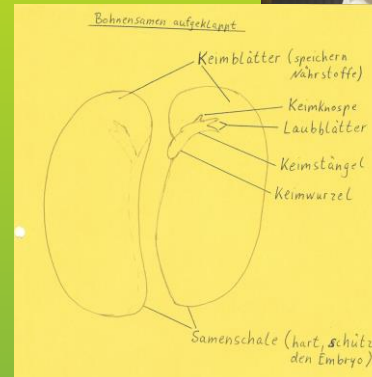 Bohnensamen aufgeklappt
Keimblätter (speichern
Nährstoffe)
Keimknospe
Laubblätter
Keimstängel
Keimwurzel
Samenschale (hart, schütz
den Embryo)